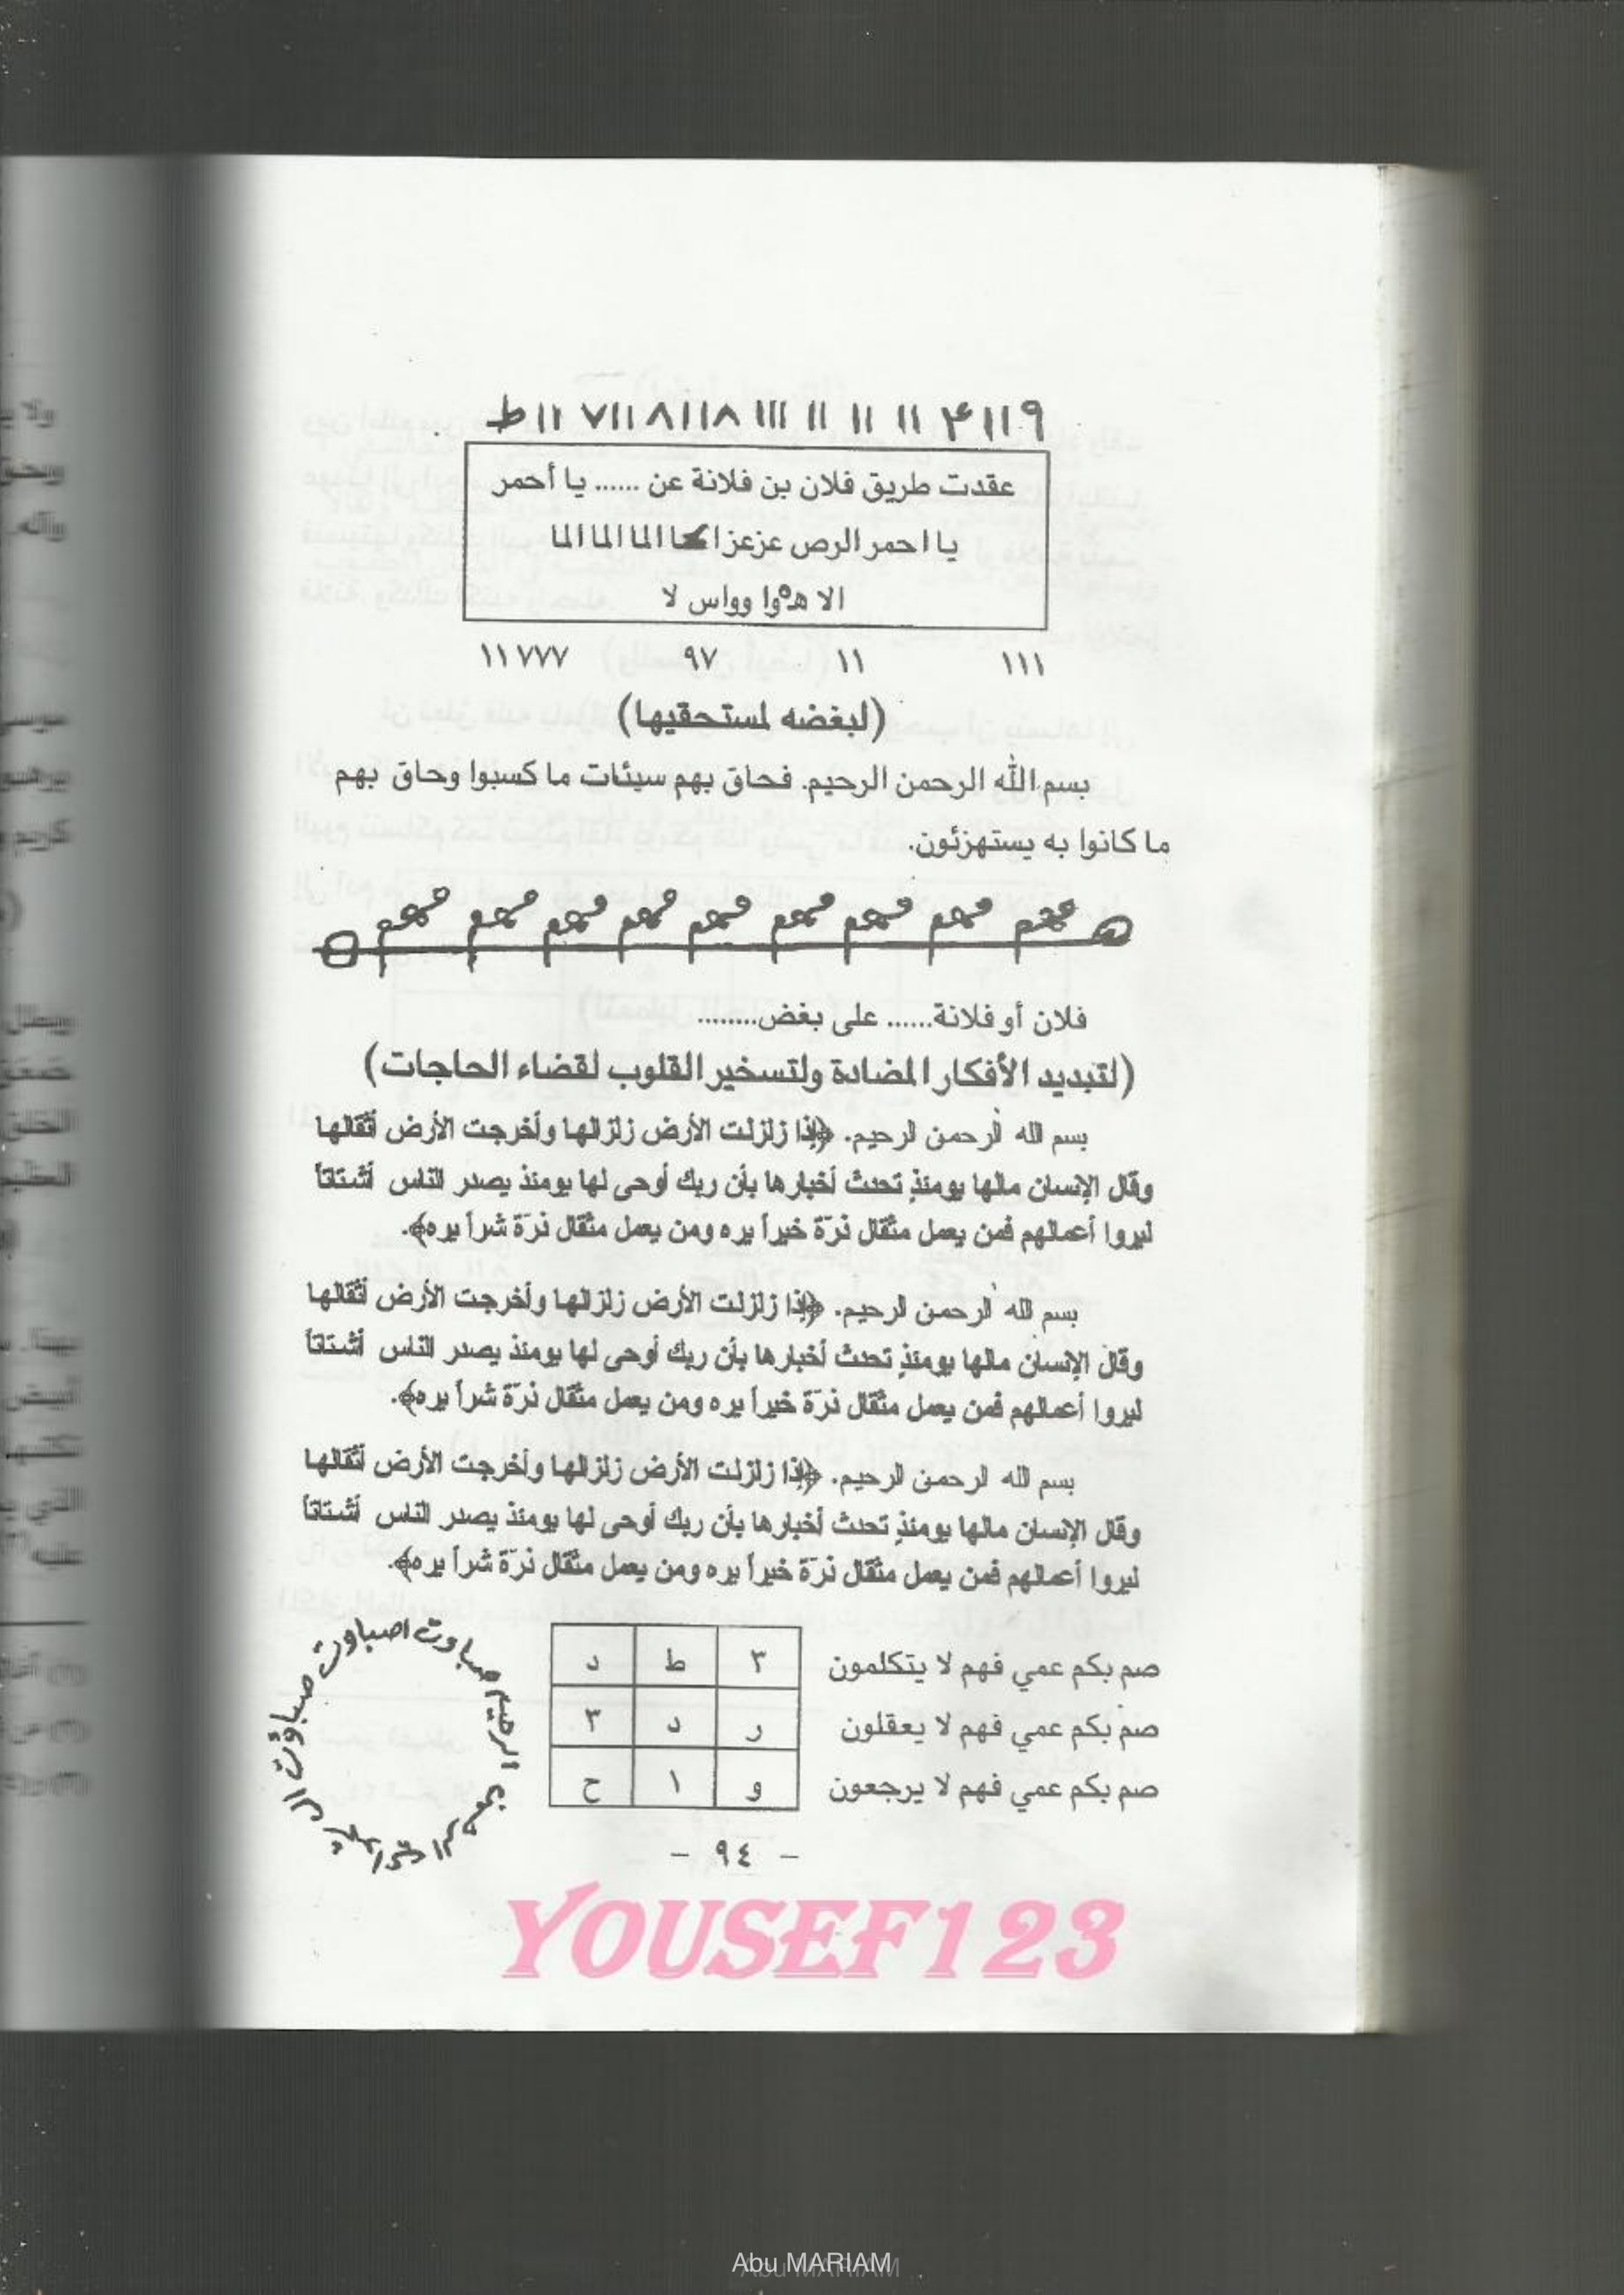 ط ١١ ٧١١ ٨١١٨ ١١١ ١١ ١١ ١١ ۴ ١١٩
عقدت طريق فلان بن فلانة عن ...... يا أحمر
يا احمر الرص عزعزا الما الما الما
الا هوا وواس لا
١١١ ١١ ٩٧ ١١٧٧٧
(لبغضه لمستحقيها)
بسم الله الرحمن الرحيم. فحاق بهم سيئات ما كسبوا وحاق بهم
ما كانوا به يستهزئون.
فلان أو فلانة...... على بغض........
(لتبديد الأفكار المضادة ولتسخير القلوب لقضاء الحاجات)
بسم الله الرحمن الرحيم. ﴿إذا زلزلت الأرض زلزالها وأخرجت الأرض أثقالها
وقال الإنسان مالها يومئذٍ تحدث أخبارها بأن ربك أوحى لها يومئذ يصدر الناس أشتاتاً
ليروا أعمالهم فمن يعمل مثقال ذرّة خيراً يره ومن يعمل مثقال ذرّة شراً يره﴾.
بسم الله الرحمن الرحيم. ﴿إذا زلزلت الأرض زلزالها وأخرجت الأرض أثقالها
وقال الإنسان مالها يومئذٍ تحدث أخبارها بأن ربك أوحى لها يومئذ يصدر الناس أشتاتاً
ليروا أعمالهم فمن يعمل مثقال ذرّة خيراً يره ومن يعمل مثقال ذرّة شراً يره﴾.
بسم الله الرحمن الرحيم. ﴿إذا زلزلت الأرض زلزالها وأخرجت الأرض أثقالها
وقال الإنسان مالها يومئذٍ تحدث أخبارها بأن ربك أوحى لها يومئذ يصدر الناس أشتاتاً
ليروا أعمالهم فمن يعمل مثقال ذرّة خيراً يره ومن يعمل مثقال ذرّة شراً يره﴾.
صم بكم عمي فهم لا يتكلمون
صم بكم عمي فهم لا يعقلون
صم بكم عمي فهم لا يرجعون
٣ ط د
ر د ٣
و ١ ح
اصباوت صباوت
- ٩٤ -
YOUSEF123
Abu MARIAM